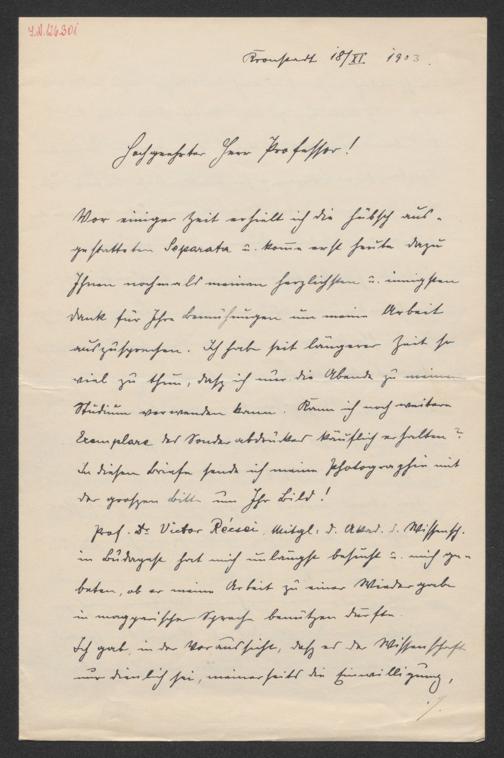 I.N. 126.301
Kronstadt 18/XI. 1903.
Hochgeehrter Herr Professor!
Vor einiger Zeit erhielt ich die hübsch aus-
gestatteten Separata u. komme erst heute dazu
Ihnen nochmals meinen herzlichsten u. innigsten
Dank für Ihre Bemühungen um meine Arbeit
auszusprechen. Ich habe seit längerer Zeit so
viel zu thun, dasz ich nur die Abende zu meinem
Studium verwenden kann. Kann ich noch weitere
Exemplare des Sonderabdruckes käuflich erhalten?
In diesem Briefe sende ich meine Photographie mit
der groszen Bitte um Ihr Bild!
Prof. Dr. Victor Récsei, Mitgl. d. Akad. d. Wissensch.
in Budapest hat mich unlängst besucht u. mich ge-
beten, ob er meine Arbeit zu einer Wiedergabe
in magyarischer Sprache benützen dürfte.
Ich gab, in der Voraussicht, dasz es der Wissenschaft
nur dienlich sei, meinerseits die Einwilligung,
./.